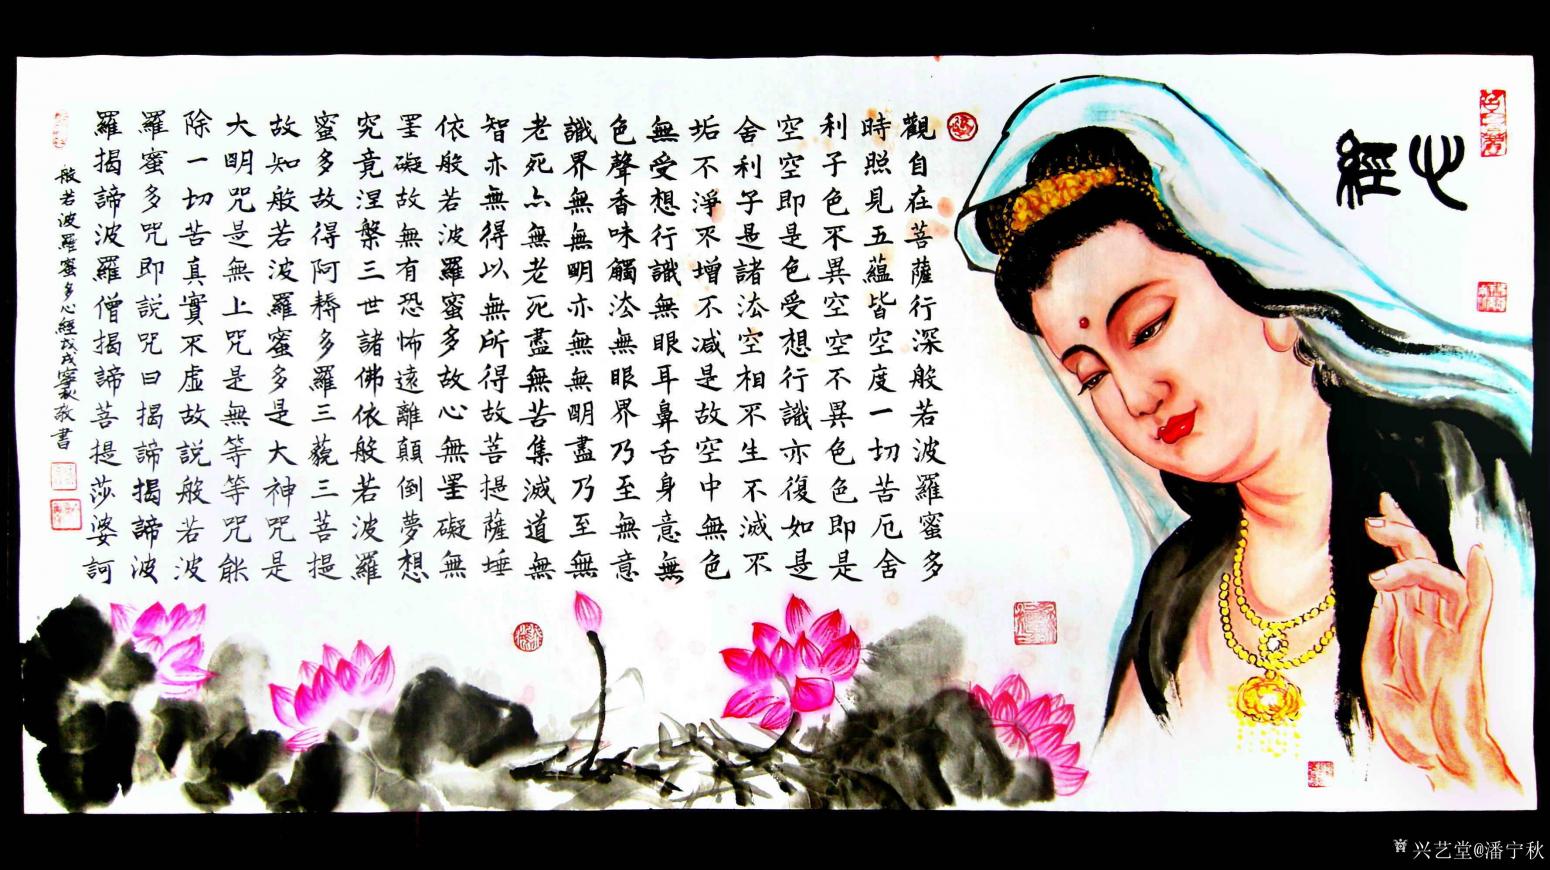 心經
觀自在菩薩行深般若波羅蜜多
時照見五蘊皆空度一切苦厄舍
利子色不異空空不異色色即是
空空即是色受想行識亦復如是
舍利子是諸法空相不生不滅不
垢不淨不增不减是故空中無色
無受想行識無眼耳鼻舌身意無
色聲香味觸法無眼界乃至無意
識界無無明亦無無明盡乃至無
老死亦無老死盡無苦集滅道無
智亦無得以無所得故菩提薩埵
依般若波羅蜜多故心無罣礙無
罣礙故無有恐怖遠離顛倒夢想
究竟涅槃三世諸佛依般若波羅
蜜多故得阿耨多羅三藐三菩提
故知般若波羅蜜多是大神咒是
大明咒是無上咒是無等等咒能
除一切苦真實不虛故説般若波
羅蜜多咒即説咒曰揭諦揭諦波
羅揭諦波羅僧揭諦菩提莎婆訶
般若波羅蜜多心經戊戌寧秋敬書
兴艺堂@潘宁秋